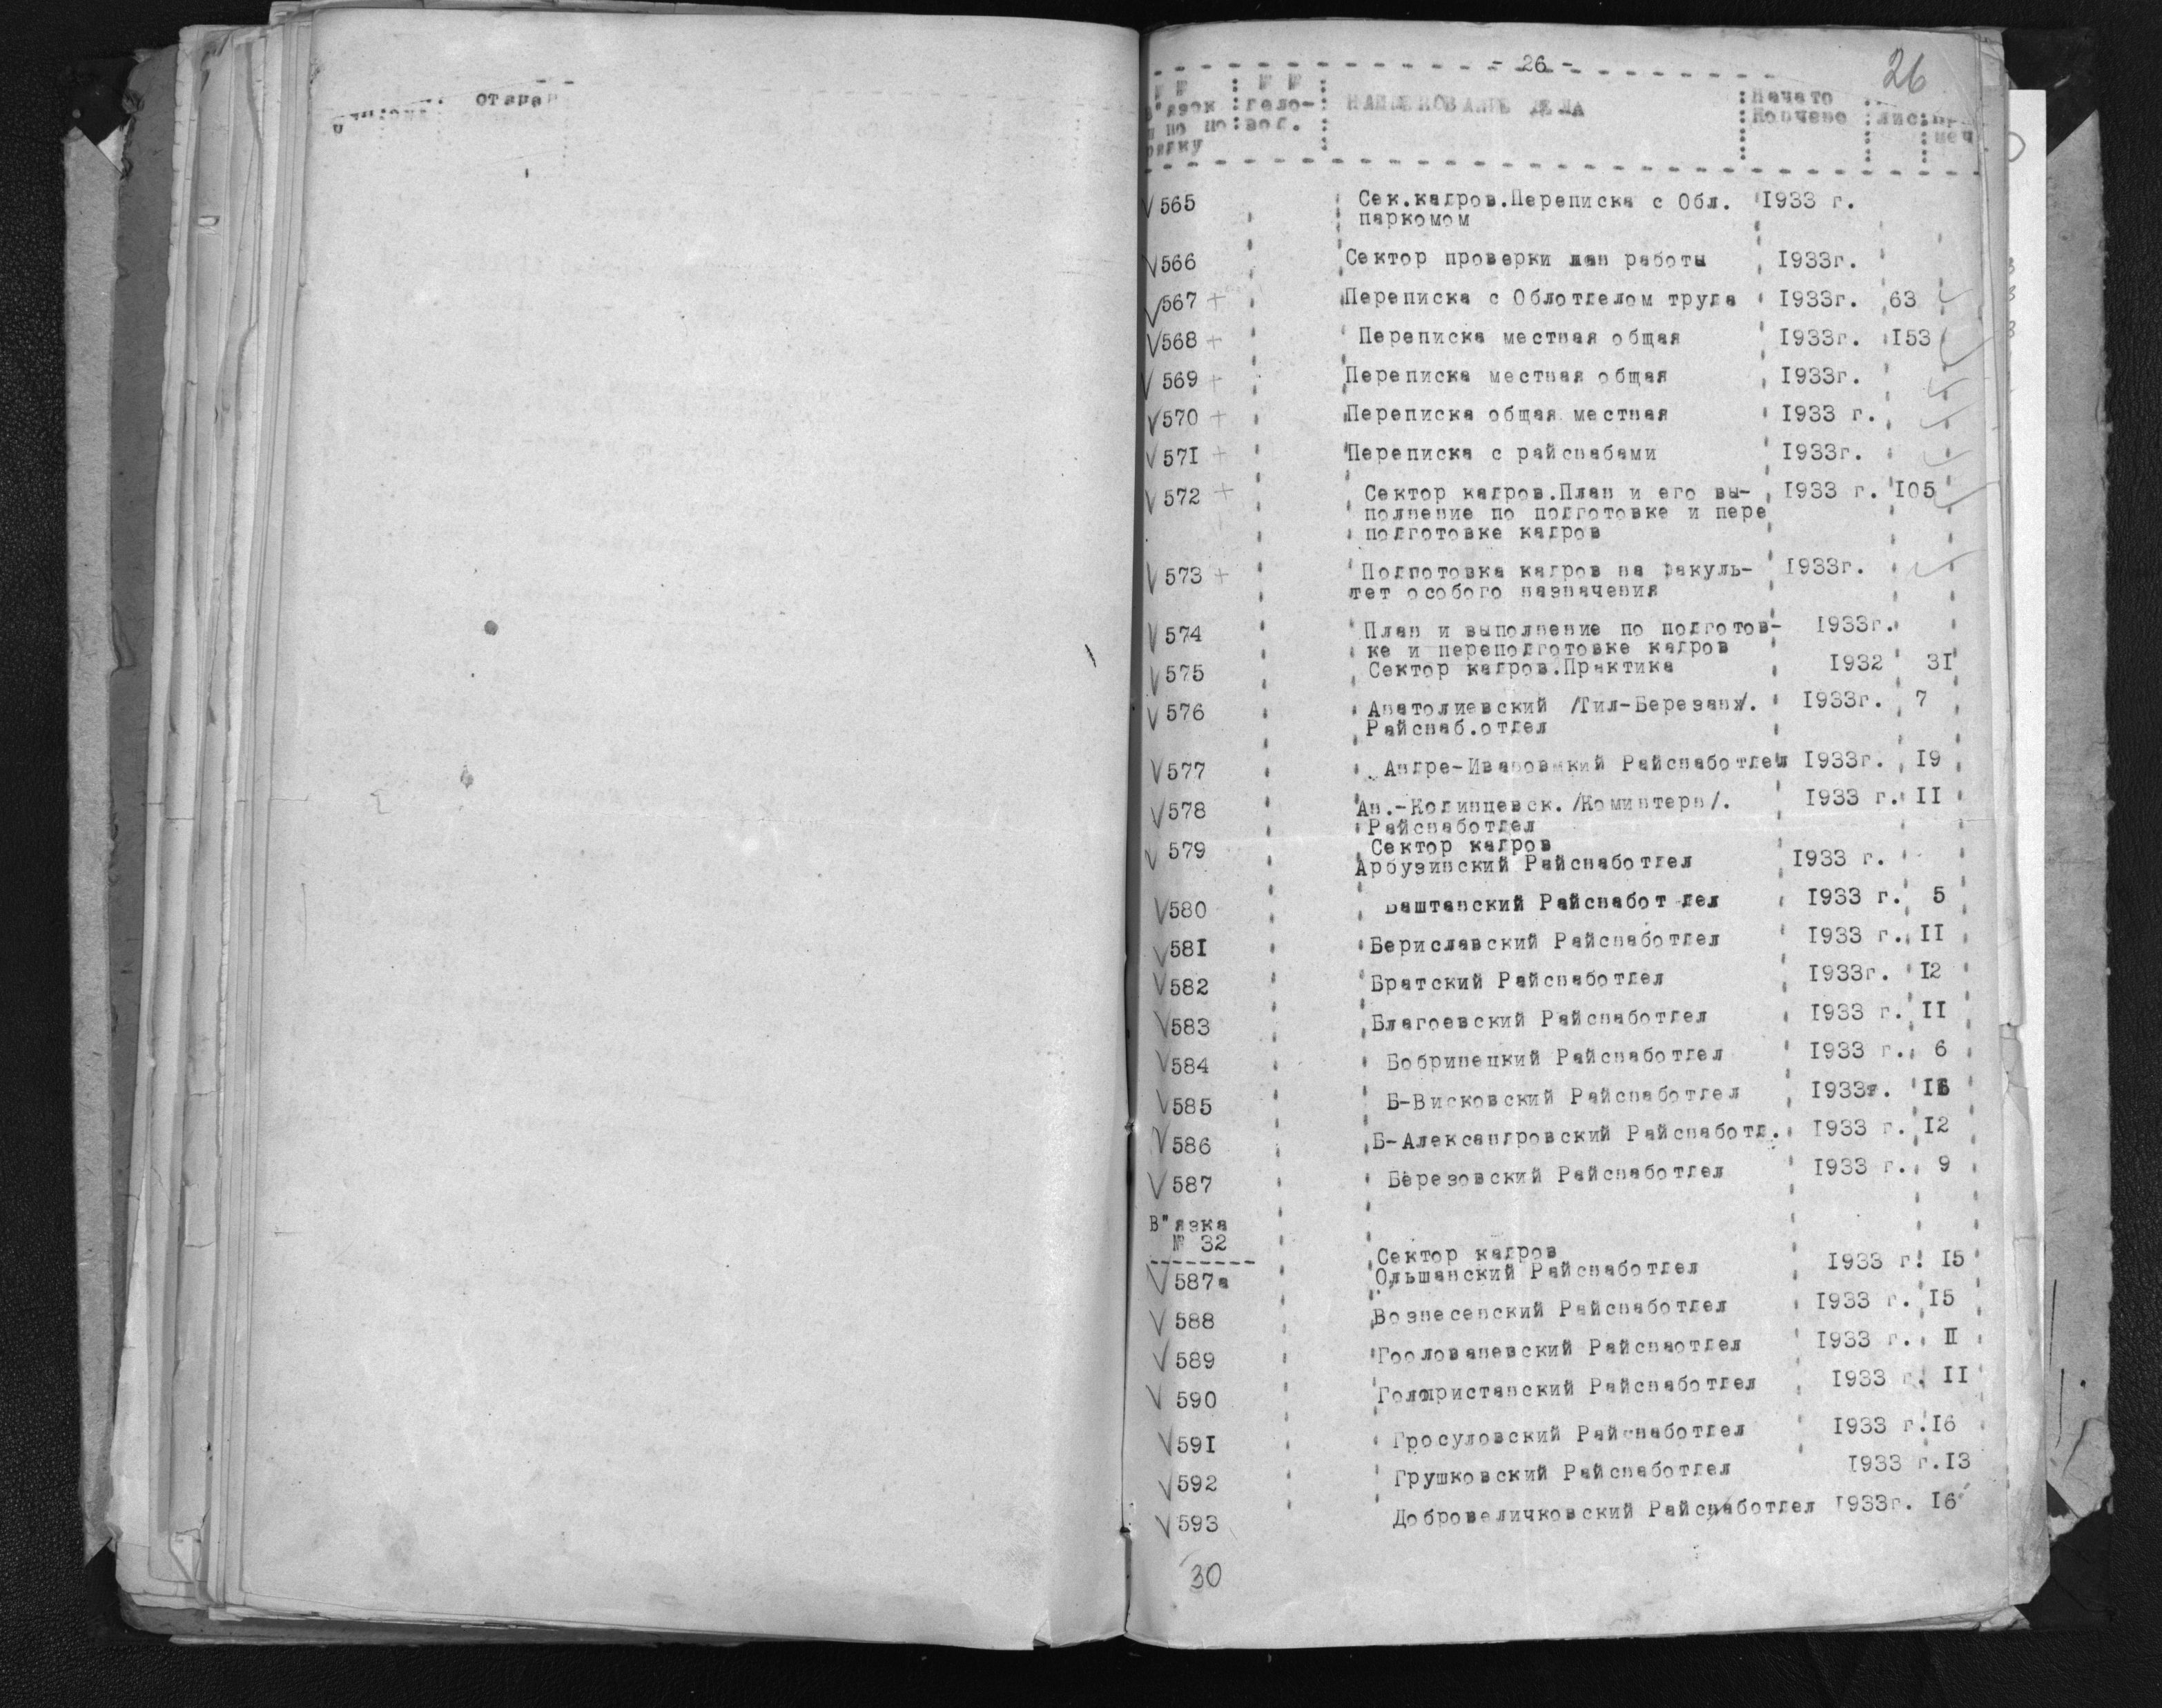 - 26 -
26
№ № : № № : НАИМЕНОВАНИЕ ДЕЛА : Начато
в"язок : дело- : Кончено : лис:
и по по: вод. : меч
рядку
V 565 Сек.кадров.Переписка с Обл. 1933 г.
паркомом
V 566 Сектор проверки лан работы 1933г.
V 567 + Переписка с Облотделом труда 1933г. 63
V 568 + Переписка местная общая 1933г. I53
V 569 + Переписка местная общая 1933г.
V 570 + Переписка общая местная 1933 г.
V 57I + Переписка с райснабами 1933г.
V 572 + Сектор кадров.План и его вы- 1933 г. I05
полнение по подготовке и пере
подготовке кадров
V 573 + Подпотовка кадров на факуль- 1933г.
тет особого назначения
V 574 План и выполнение по подготов- 1933г.
ке и переподготовке кадров
V 575 Сектор кадров.Практика 1932 3I
V 576 Анатолиевский /Тил-Березань/. 1933г. 7
Райснаб.отдел
V 577 Андре-Ивановский Райснаботдел 1933г. I9
V 578 Ан.-Кодинцевск. /Коминтерн/. 1933 г. II
Райснаботдел
V 579 Сектор кадров
Арбузинский Райснаботдел 1933 г.
V 580 Баштанский Райснабот дел 1933 г. 5
V 58I Бериславский Райснаботдел 1933 г. II
V 582 Братский Райснаботдел 1933г. I2
V 583 Благоевский Райснаботдел 1933 г. II
V 584 Бобринецкий Райснаботдел 1933 г. 6
V 585 Б-Висковский Райснаботдел 1933г.
V 586 Б-Александровский Райснаботд. 1933 г. I2
V 587 Березовский Райснаботдел 1933 г. 9
В"язка
№ 32
Сектор кадров
V 587а Ольшанский Райснаботдел 1933 г. I5
V 588 Вознесенский Райснаботдел 1933 г. I5
V 589 Гоолованевский Райснаотдел 1933 г. II
V 590 Голопристанский Райснаботдел 1933 г. II
V 59I Гросуловский Райснаботдел 1933 г. I6
V 592 Грушковский Райснаботдел 1933 г. I3
V 593 Добровеличковский Райснаботдел 1933г. I6
30